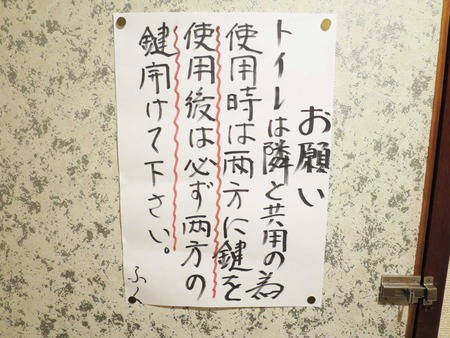 お願い
トイレは隣と共用の為
使用時は両方に鍵を
使用後は必ず両方の
鍵開けて下さい。
ふく